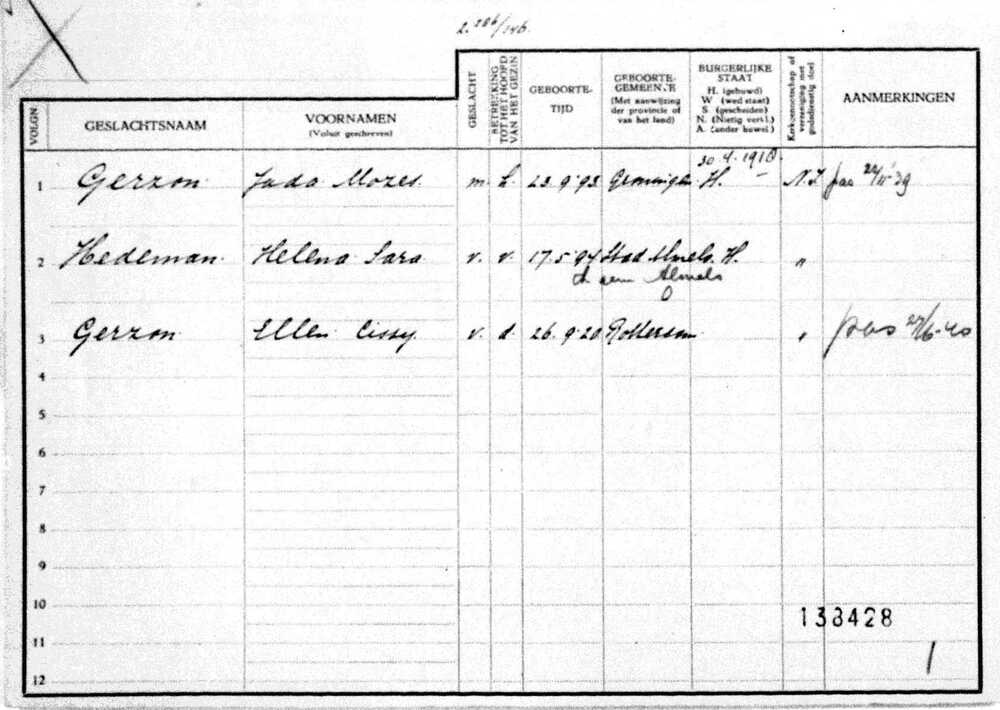 2.286/146.
VOLGN.
GESLACHTSNAAM
VOORNAMEN
(Voluit geschreven)
GESLACHT
BETREKKING
TOT HET HOOFD
VAN HET GEZIN
GEBOORTE-
TIJD
GEBOORTE-
GEMEENTE
(Met aanwijzing
der provincie of
van het land)
BURGERLIJKE
STAAT
H. (gehuwd)
W (wed staat)
S (gescheiden)
N. (Nietig verkl.)
A. (ander huwel.)
Kerkgenootschap of
vereeniging met
godsdienstig doel
AANMERKINGEN
30.4.1918.
1 Gerzon Juda Mozes. m. h. 23.9.93 Groningen H. N.I pas
2 Hedeman Helena Sara v. v. 17.5.94 Stad Almelo. H. "
Almelo
3 Gerzon Ellen Cissy. v. d. 26.9.20 Rotterdam " pas 27/6-40
4
5
6
7
8
9
10
138428
11
12